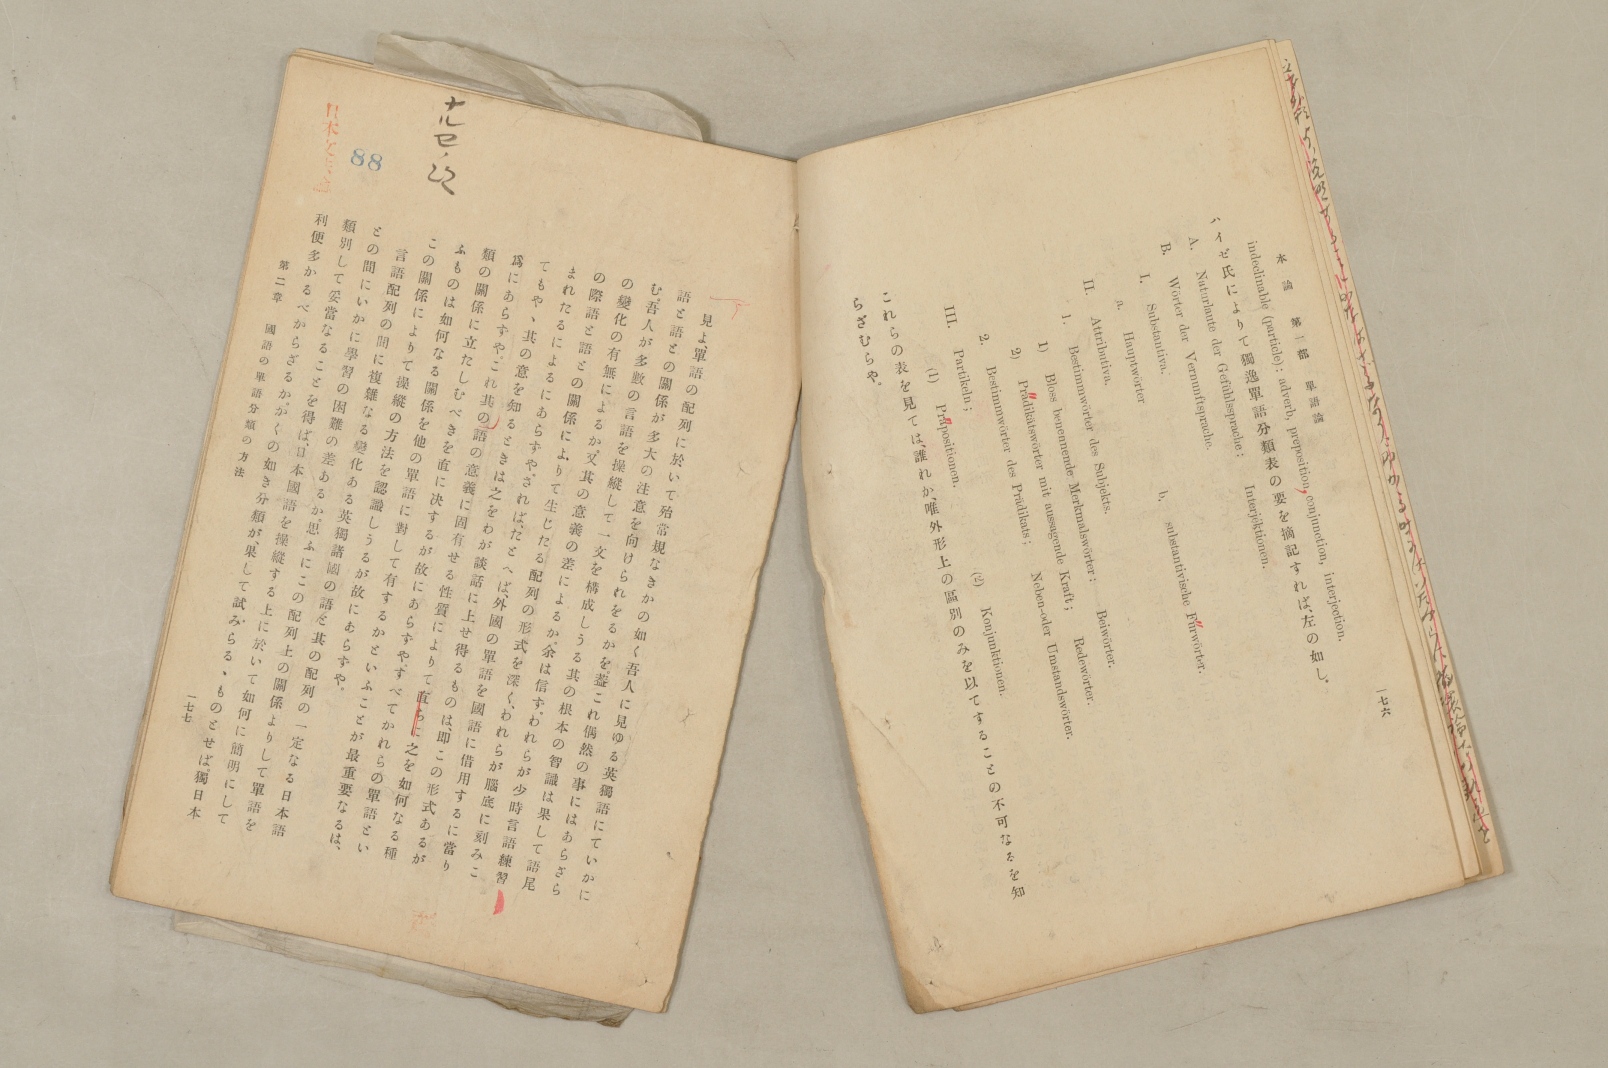 本論　第一部　單語論
一七六
indeclinable (particle); adverb, preposition, conjunction, interjection.
ハイゼ氏によりて獨逸單語分類表の要を摘記すれば、左の如し。
A. Naturlaute der Gefühlssprache: Interjektionen.
B. Wörter der Vernunftsprache.
I. Substantiva.
a. Hauptwörter b. substantivische Fürwörter.
II. Attributiva.
1. Bestimmwörter des Subjekts.
1) Bloss benennende Merkmalswörter: Beiwörter.
2) Prädikatswörter mit aussagende Kraft; Redewörter.
2. Bestimmwörter des Prädikats; Neben-oder Umstandswörter.
III. Partikeln;
(1) Präpositionen. (2) Konjunktionen.
これらの表を見ては、誰れか、唯外形上の區別のみを以てすることの不可なるを知
らざむらや。
見よ、單語の配列に於いて殆常規なきかの如く吾人に見ゆる英獨語にていかに
語と語との關係が多大の注意を向けられをるかを。蓋これ偶然の事にはあらざら
む、吾人が多數の言語を操縱して一文を構成しうる其の根本の智識は果して語尾
の變化の有無によるか、又其の意義の差によるか。余は信ず。われらが少時言語練習
の際語と語との關係により、て生じたる配列の形式を深く、われらが腦底に刻みこ
まれたるによるにあらずや。されば、たとへば、外國の單語を國語に借用するに當り
てもや、其の意を知るときは之をわが談話に上せ得るものは、即この形式あるが
爲にあらずや。これ其の語の意義に固有せる性質によりて直ちに之を如何なる種
類の關係に立たしむべきを直に决するが故にあらずや。すべてかれらの單語とい
ふものは如何なる關係を他の單語に對して有するかといふことが最重要なるは、
この關係によりて操縱の方法を認識しうるが故にあらずや。
言語配列の間に複雜なる變化ある英獨諸國の語と其の配列の一定なる日本語
との間にいかに學習の困難の差あるか。思ふにこの配列上の關係よりして單語を
類別して妥當なることを得ば、日本國語を操縱する上に於いて如何に簡明にして
利便多かるべからざるか。かくの如き分類が、果して試みらる、ものとせば、獨日本
第二章　國語の單語分類の方法
一七七
88